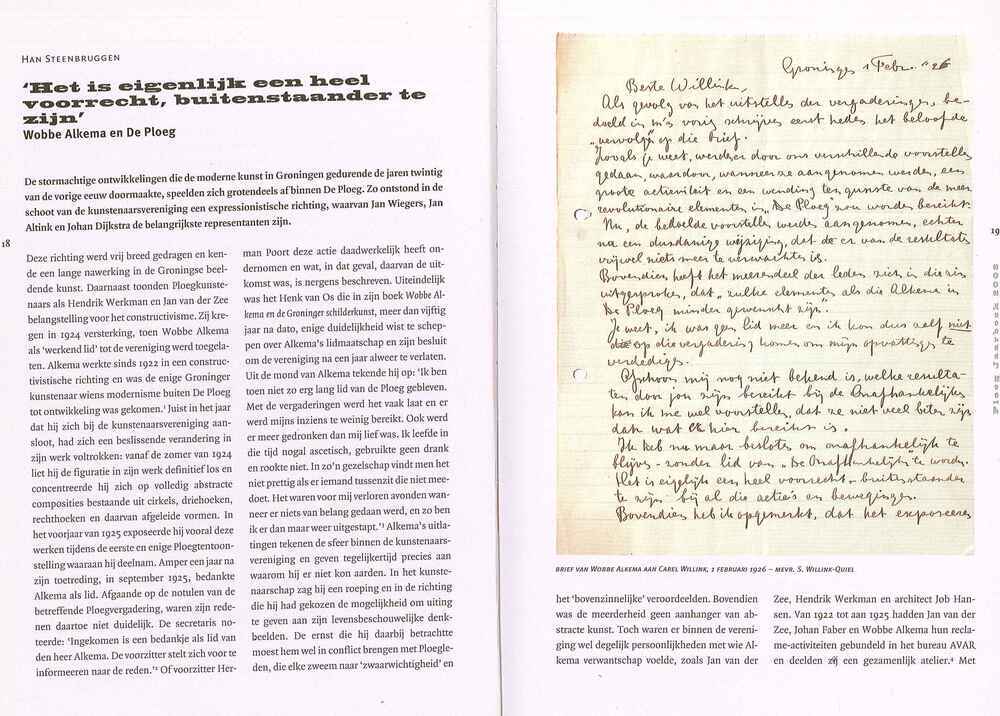 HAN STEENBRUGGEN
‘Het is eigenlijk een heel
voorrecht, buitenstaander te
zijn’
Wobbe Alkema en De Ploeg
De stormachtige ontwikkelingen die de moderne kunst in Groningen gedurende de jaren twintig
van de vorige eeuw doormaakte, speelden zich grotendeels af binnen De Ploeg. Zo ontstond in de
schoot van de kunstenaarsvereniging een expressionistische richting, waarvan Jan Wiegers, Jan
Altink en Johan Dijkstra de belangrijkste representanten zijn.
18
Deze richting werd vrij breed gedragen en ken-
de een lange nawerking in de Groningse beel-
dende kunst. Daarnaast toonden Ploegkunste-
naars als Hendrik Werkman en Jan van der Zee
belangstelling voor het constructivisme. Zij kre-
gen in 1924 versterking, toen Wobbe Alkema
als ‘werkend lid’ tot de vereniging werd toegela-
ten. Alkema werkte sinds 1922 in een construc-
tivistische richting en was de enige Groninger
kunstenaar wiens modernisme buiten De Ploeg
tot ontwikkeling was gekomen.¹ Juist in het jaar
dat hij zich bij de kunstenaarsvereniging aan-
sloot, had zich een beslissende verandering in
zijn werk voltrokken: vanaf de zomer van 1924
liet hij de figuratie in zijn werk definitief los en
concentreerde hij zich op volledig abstracte
composities bestaande uit cirkels, driehoeken,
rechthoeken en daarvan afgeleide vormen. In
het voorjaar van 1925 exposeerde hij vooral deze
werken tijdens de eerste en enige Ploegtentoon-
stelling waaraan hij deelnam. Amper een jaar na
zijn toetreding, in september 1925, bedankte
Alkema als lid. Afgaande op de notulen van de
betreffende Ploegvergadering, waren zijn rede-
nen daartoe niet duidelijk. De secretaris no-
teerde: ‘Ingekomen is een bedankje als lid van
den heer Alkema. De voorzitter stelt zich voor te
informeeren naar de reden.’² Of voorzitter Her-
man Poort deze actie daadwerkelijk heeft on-
dernomen en wat, in dat geval, daarvan de uit-
komst was, is nergens beschreven. Uiteindelijk
was het Henk van Os die in zijn boek Wobbe Al-
kema en de Groninger schilderkunst, meer dan vijftig
jaar na dato, enige duidelijkheid wist te schep-
pen over Alkema’s lidmaatschap en zijn besluit
om de vereniging na een jaar alweer te verlaten.
Uit de mond van Alkema tekende hij op: ‘Ik ben
toen niet zo erg lang lid van De Ploeg gebleven.
Met de vergaderingen werd het vaak laat en er
werd mijns inziens te weinig bereikt. Ook werd
er meer gedronken dan mij lief was. Ik leefde in
die tijd nogal ascetisch, gebruikte geen drank
en rookte niet. In zo’n gezelschap vindt men het
niet prettig als er iemand tussenzit die niet mee-
doet. Het waren voor mij verloren avonden wan-
neer er niets van belang gedaan werd, en zo ben
ik er dan maar weer uitgestapt.’³ Alkema’s uitla-
tingen tekenen de sfeer binnen de kunstenaars-
vereniging en geven tegelijkertijd precies aan
waarom hij er niet kon aarden. In het kunste-
naarschap zag hij een roeping en in de richting
die hij had gekozen de mogelijkheid om uiting
te geven aan zijn levensbeschouwelijke denk-
beelden. De ernst die hij daarbij betrachtte
moest hem wel in conflict brengen met Ploegle-
den, die elke zweem naar ‘zwaarwichtigheid’ en
Groningen 1 Febr. ’26
Beste Willink,
Als gevolg van het uitstellen der vergaderingen, be-
doeld in m’n vorig schrijven eerst heden het beloofde
„vervolg” op die brief.
Zooals je weet, werden er door ons verschillende voorstellen
gedaan, waardoor, wanneer ze aangenomen werden, een
groote activiteit en een wending ten gunste van de meer
revolutionaire elementen in „De Ploeg” zou worden bereikt.
Nu, de bedoelde voorstellen werden aangenomen, echter
na een dusdanige wijziging, dat er van de resultaten
vrijwel niets meer te verwachten is.
Bovendien heeft het meerendeel der leden zich in die zin
uitgesproken, dat „zulke elementen als die Alkema in
De Ploeg minder gewenscht zijn”.
Je weet, ik was geen lid meer en ik kon dus zelf niet
op die vergadering komen om mijn opvattingen te
verdedigen.
Ofschoon mij nog niet bekend is, welke resulta-
ten door jou zijn bereikt bij de Onafhankelijken
kan ik me wel voorstellen, dat ze niet veel beter zijn
dan wat hier bereikt is.
Ik heb nu maar besloten om onafhankelijk te
blijven – zonder lid van „De Onafhankelijken” te worden.
Het is eigelijk een heel voorrecht – buitenstaander
te zijn bij al die actie’s en bewegingen.
Bovendien heb ik opgemerkt, dat het exposeeren
BRIEF VAN WOBBE ALKEMA AAN CAREL WILLINK, 1 FEBRUARI 1926 – MEVR. S. WILLINK-QUIEL
het ‘bovenzinnelijke’ veroordeelden. Bovendien
was de meerderheid geen aanhanger van ab-
stracte kunst. Toch waren er binnen de vereni-
ging wel degelijk persoonlijkheden met wie Al-
kema verwantschap voelde, zoals Jan van der
Zee, Hendrik Werkman en architect Job Han-
sen. Van 1922 tot aan 1925 hadden Jan van der
Zee, Johan Faber en Wobbe Alkema hun recla-
me-activiteiten gebundeld in het bureau AVAR
en deelden zij een gezamenlijk atelier.⁴ Met
19